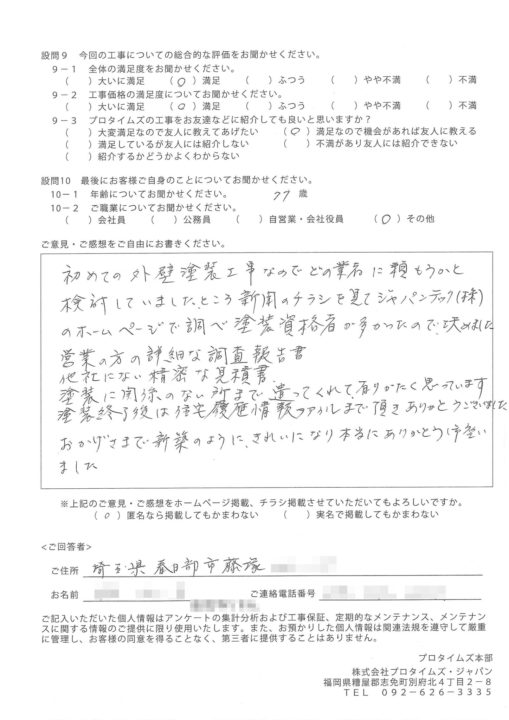 設問9 今回の工事についての総合的な評価をお聞かせください。
9-1 全体の満足度をお聞かせください。
( )大いに満足 (○)満足 ( )ふつう ( )やや不満 ( )不満
9-2 工事価格の満足度についてお聞かせください。
( )大いに満足 (○)満足 ( )ふつう ( )やや不満 ( )不満
9-3 プロタイムズの工事をお友達などに紹介しても良いと思いますか?
( )大変満足なので友人に教えてあげたい (○)満足なので機会があれば友人に教える
( )満足しているが友人には紹介しない ( )不満があり友人には紹介できない
( )紹介するかどうかよくわからない
設問10 最後にお客様ご自身のことについてお聞かせください。
10-1 年齢についてお聞かせください。 77 歳
10-2 ご職業についてお聞かせください。
( )会社員 ( )公務員 ( )自営業・会社役員 (○)その他
ご意見・ご感想をご自由にお書きください。
初めての外壁塗装工事なのでどの業者に頼もうかと
検討していました、ところ新聞のチラシを見てジャパンテック(株)
のホームページで調べ塗装資格者が多かったので、決めました
営業の方の詳細な調査報告書
他社にない精密な見積書
塗装に関係のない所まで、造ってくれて有りがたく思っています
塗装終了後は住宅履歴情報ファイルまで頂きありがとうございました
おかげさまで新築のように、きれいになり本当にありがとう御座い
ました
※上記のご意見・ご感想をホームページ掲載、チラシ掲載させていただいてもよろしいですか。
(○)匿名なら掲載してもかまわない ( )実名で掲載してもかまわない
<ご回答者>
ご住所 埼玉県春日部市藤塚
お名前 ご連絡電話番号
ご記入いただいた個人情報はアンケートの集計分析および工事保証、定期的なメンテナンス、メンテナン
スに関する情報のご提供に限り使用いたします。また、お預かりした個人情報は関連法規を遵守して厳重
に管理し、お客様の同意を得ることなく、第三者に提供することはありません。
プロタイムズ本部
株式会社プロタイムズ・ジャパン
福岡県糟屋郡志免町別府北4丁目2-8
TEL 092-626-3335